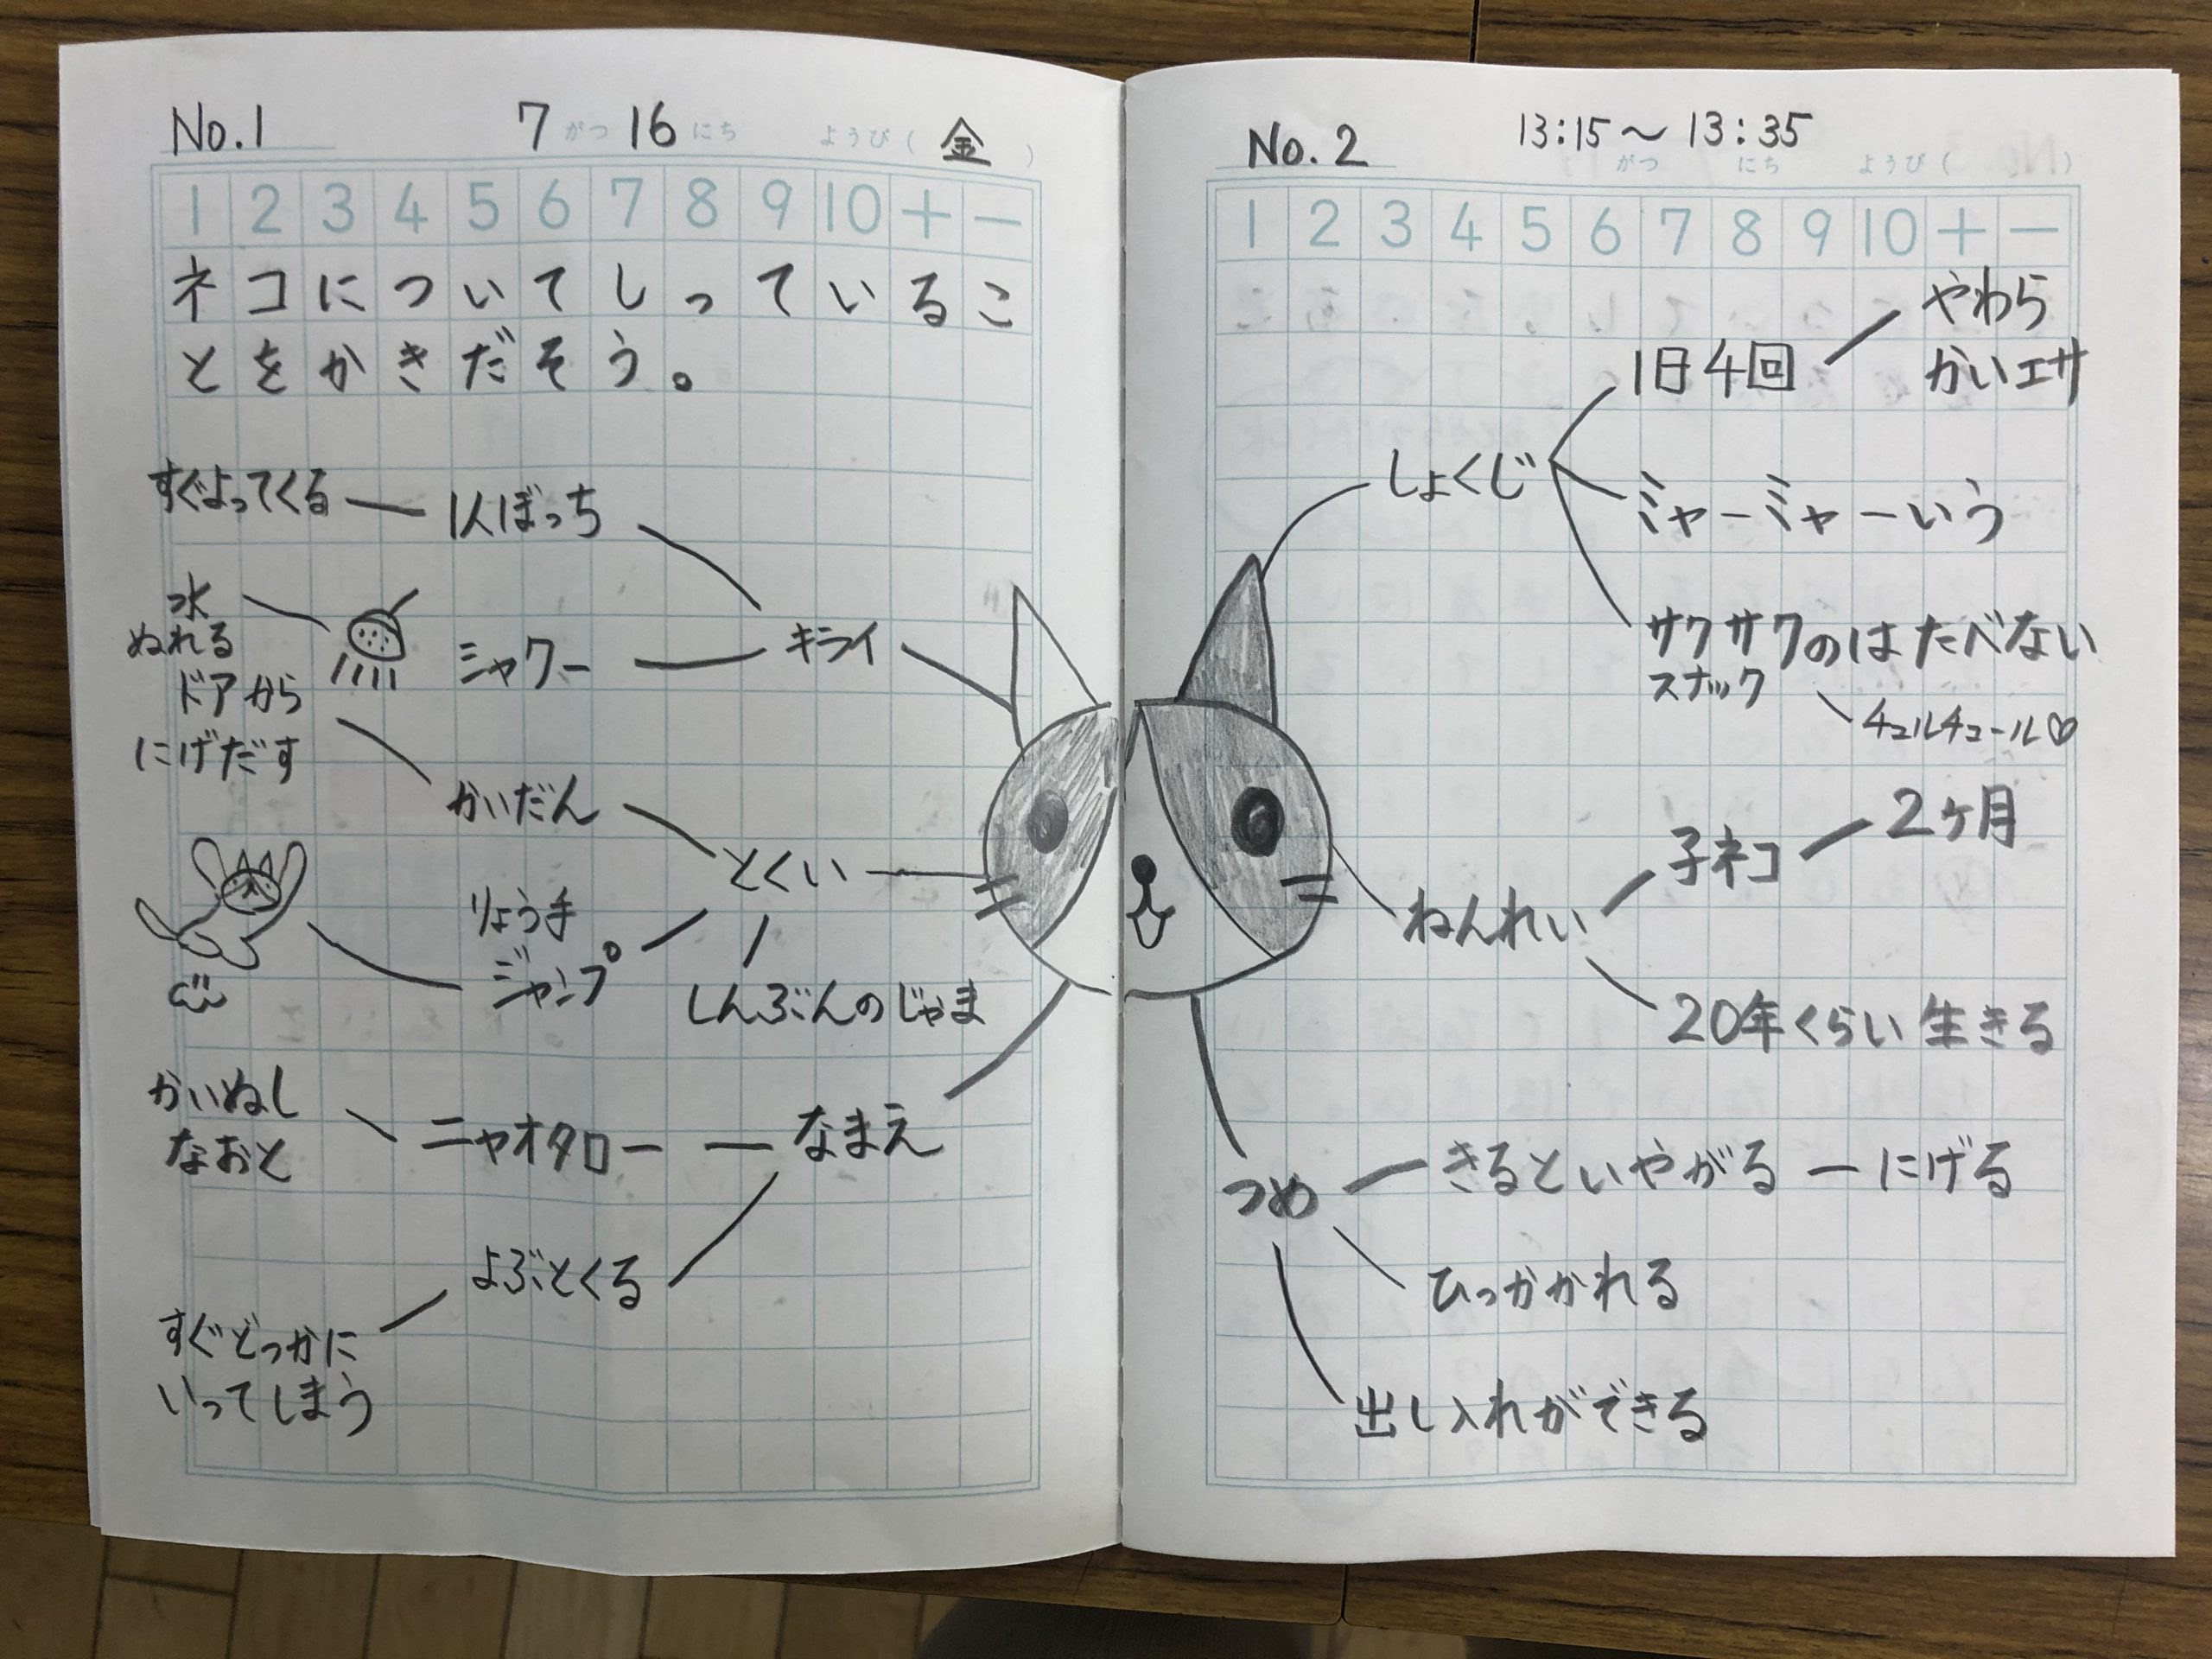 No.1 7がつ16にち ようび(金)
1 2 3 4 5 6 7 8 9 10 + −
ネコについてしっているこ
とをかきだそう。
すぐよってくる
1人ぼっち
水
ぬれる
シャワー
キライ
ドアから
にげだす
かいだん
とくい
りょう手
ジャンプ
しんぶんのじゃま
かいぬし
なおと
ニャオタロー
なまえ
よぶとくる
すぐどっかに
いってしまう
No.2 13:15〜13:35
がつ にち ようび( )
1 2 3 4 5 6 7 8 9 10 + −
しょくじ
1日4回
やわら
かいエサ
ミャーミャーいう
サクサクのはたべない
スナック
チュルチュール♡
ねんれい
子ネコ
2ヶ月
20年くらい生きる
つめ
きるといやがる
にげる
ひっかかれる
出し入れができる